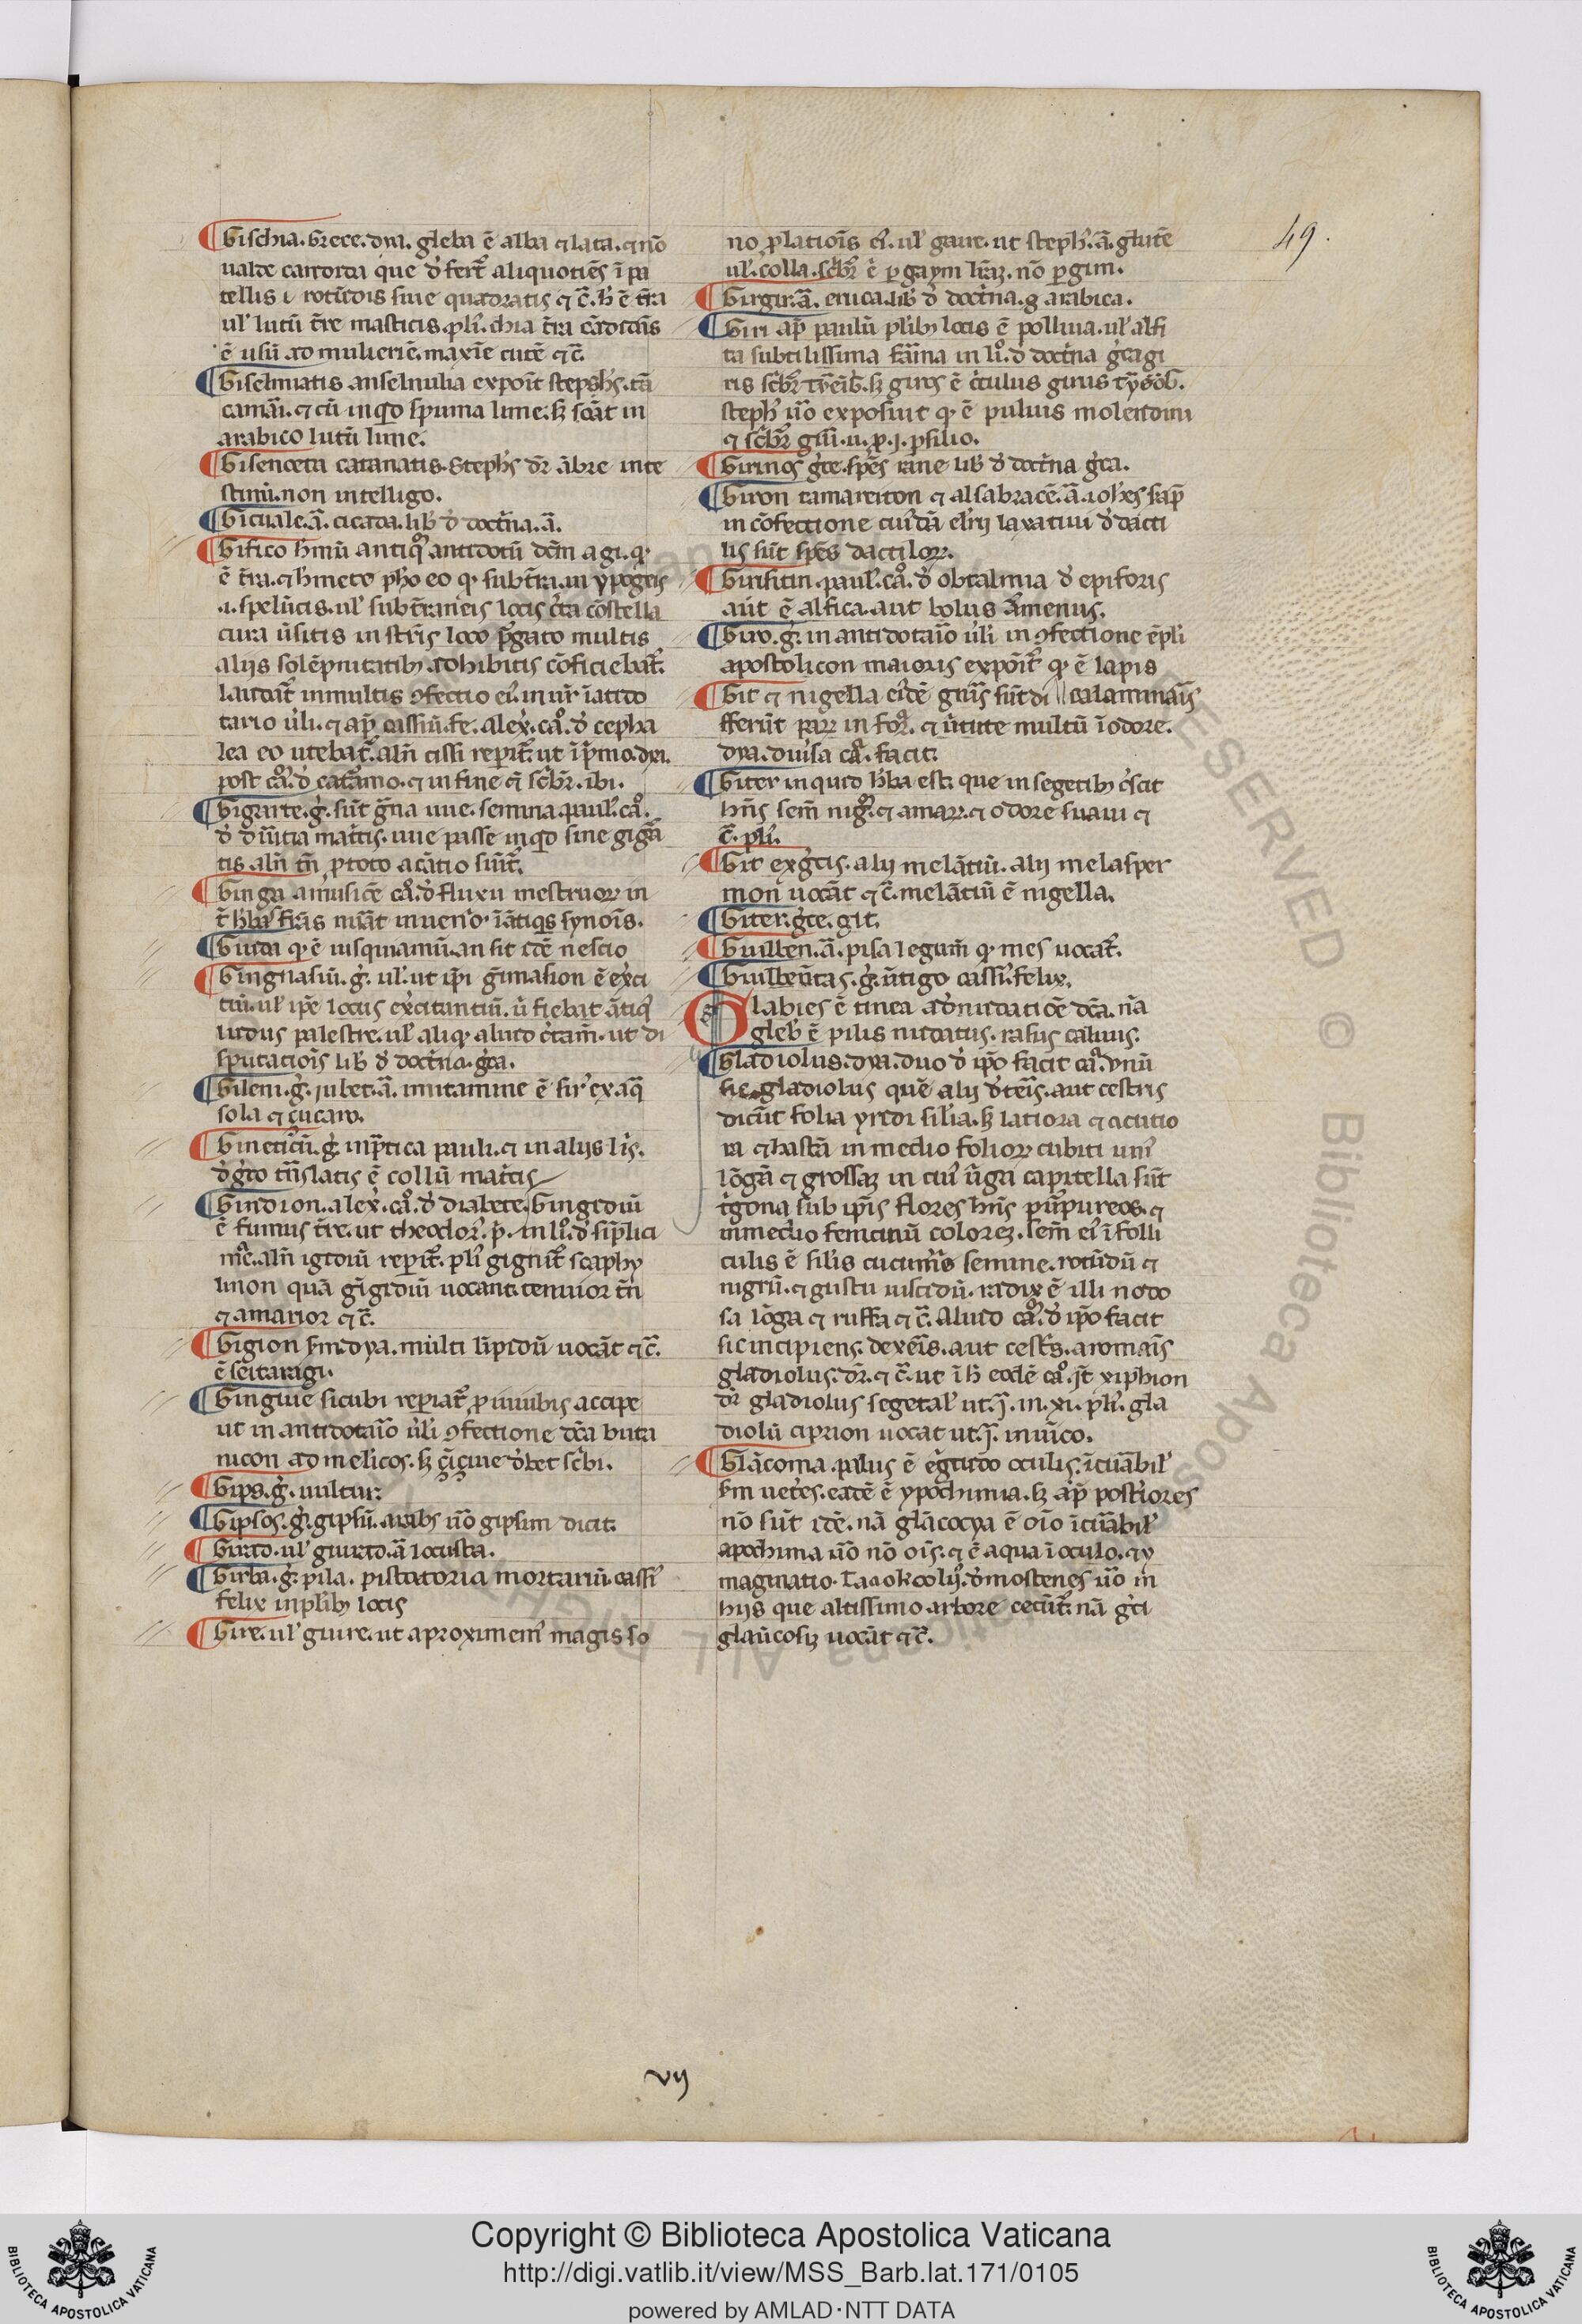 49.
Gischia. Grece. dya. gleba ē alba ⁊ lata. ⁊ nō
ualde candida que d̓fert̄ aliquotiēs ī pa
tellis ⁊ rotūdis siue quadratis ⁊ c̄. h̓ ē t̄ra
ul̓ lutū t̄re masticis. plī. chia t̄ra cādidās
ē usū ad mulierē. maxīe cutē ⁊ c̄.
Giselmiatis anselnulia expoīt stephs̓. cā
camāi. ⁊ cū inqd spuma lune. sꝫ scāt in
arabico lutū lune.
Gisenceta catanatis. Stephs̓ dr̄ ābre inte
stinū. non intelligo.
Gicuale. ā. cicada. lib̓ d̓ doctīna. ā.
Gifico h̓mū antiqͦ antidotū dcm̄ agi. qꝫ
ē t̄ra. ⁊ h̓meto pho eo qꝫ subt̄ra. in ypogeis
.i. spelūcis. ul̓ subt̄raneis locis c̄ta cōstella
tura ūsitis in st̄ris loco p̄gato multis
alijs solēpnitatibꝫ adhibitis cōficiebat̄.
laudat̄ in multis ꝯfectio ei̓. in nr̄ īatido
tario ul̓i. ⁊ ap̄ cassiū. fe. alex̓. cͣo. d̓ cepha
lea eo utebat̄. aln̄ cissi rep̓it̄. ut ī p̄mo. dya.
post cͣo. d̓ catāmo. ⁊ in fine c̄ sc̓br̄. ibi.
Gigarte. ḡ. sūt ḡna uue. semina. paul̓. cͣo.
d̓ dūitia mat̄cis. uue passe inqd sine gigā
tis aln̄ tm̄ ꝓ toto acātio sūit̄.
Ginga a musicē cͣo. d̓ fluxu mestruoꝝ in
t̄ h̓bas frās nūāt inuenio. īātiqs synoīs.
Giuda qꝫ ē iusquiamū. an sit idē nescio
Gingnasiū. ḡ. ul̓. ut ip̄i ḡmnasion ē ex̓ci
tiū. ul̓ ip̄e locus ex̓citantiū. ū fiebat ātiqͥ
ludus palestre. ul̓ aliqꝫ aliud c̄tam̄. ut di
sputatiōis lib̓ d̓ doctīna. ḡca.
Gileni. ḡ. iubet. ā. mutamine ē sir̓ ex. aq̄
sola ⁊ çucaro.
Gineticū. ḡ. inp̄tica pauli. ⁊ in alijs līs.
d̓ ḡco tn̄slatis ē collū mat̄cis
Gindion. alex̓. cͣo. d̓ diabete. Gingediū
ē fumus t̄re. ut theodor̓. p̄. in lī. d̓ sip̄lici
m̄e. aln̄ igediū rep̓it̄. plī gignit̄ scaphy
linon quā gīgediū uocant. tenuior tn̄
⁊ amarior ⁊ c̄.
Gigion sm̄. dya. multi līpidū uocāt ⁊ c̄.
ē seitaragi.
Gingiue sicubi rep̓iat̄ ꝓ iuiubis accipe
ut in antidotaīo ul̓i ꝯfectione dc̄a buta
nicon ad melīcos. sꝫ çīçiue d̓bet sc̓bi.
Gips. ḡ. uultur.
Gipsos. ḡ. gipsū. arabs uͦo gipsim dicit.
Girad. ul̓ giurad. ā locusta.
Girba. ḡ. pila. pistatoria mortariū. cassī
felix in pl̓ibꝫ locis
Gire. ul̓ giure. ut aproximem̄ magis so
no ꝓlatiōis ei̓. ul̓ gaur. ut steph̓. ā. glutē
ul̓. colla. sc̓br̄ ē p gaym līāꝫ. nō p gim.
Girgir. ā. eruca. lib̓ d̓ doctīna. g arabica.
Giri ap̄ paulū pl̓ibꝫ locis ē pollina. ul̓ alfi
ta subtilissima faīna in lī. d̓ doctīna ḡcagi
ris sc̓br̄ sꝫ giros ē c̄culus girus
steph̓ uͦo exposuit qꝫ ē puluis molendini
⁊ sc̓br̄
Girinos ḡce. sp̄es rane lib̓ d̓ doctīna ḡca.
Giron tamareiton ⁊ alsabracē. ā. ioh̓es sap̄
in cōfectione cuīdā el̓rij laxatiui d̓ dacti
lis sūt sp̄es dactiloꝝ.
Girisitin. paul̓. cͣo. d̓ obtalmia d̓ epiforis
aūt ē alfica. aut bolus armenus.
Giro. ḡ. in antidotaīo ul̓i in ꝯfectione ēpl̓i
apostolicon maioris expoīt̄ qꝫ ē lapis
Git ⁊ nigella ei̓dē gn̄is sūt di calaminaīs
fferūt parꝝ in for̓. ⁊ ūtute multū ī odore.
dya. diuisa cͣa. facit.
Giter inquid h̓ba est. que in segetibꝫ c̄scit
hn̄s sem̄ nigꝝ ⁊ amaꝝ. ⁊ odore suaui ⁊
c̄. plī.
Git ex ḡcis. alij melātiū. alij melasper
mon uocāt ⁊ c̄. melātiū ē nigella.
Giter. ḡce. git.
Giulben. ā. pisa legum̄ qꝫ mes uocat̄.
Giulberitas. ḡ. ūtigo cassī. felix.
Glabies ē tinea ad nudatiōē dc̄a. nā
gleb̓ ē pilis nudatus. rasus caluus.
Gladiolus. dya. duo d̓ ipͦo facit cͣa. vnū
sic gladiolus quē alij d̓teīs. aut cestris
dicūt folia yredi sil̓ia. sꝫ latiora ⁊ acutio
ra ⁊ hastā in medio folioꝝ cubiti uni̓
lōgā ⁊ grossaꝫ in cui̓ ūga capitella sūt
t̄gona sub ip̄is flores hn̄s pūpureos. ⁊
in medio feminiū coloreꝫ. sem̄ ei̓ ī folli
culis ē sil̓is cucum̄is semine. rotūdū ⁊
nigrū. ⁊ gustu uiscidū. radix ē illi nodo
sa lōga ⁊ ruffa ⁊ c̄. Aliud cͣo. d̓ ipͦo facit
sic incipiens. dexeīs. aut cest̄s. aromaīs
gladiolus. dr̄. ⁊ c̄. ut ī h̓ eodē cͣo. q̄t xiphion
dr̄ gladiolus segetal̓ ut. q̄. in. xi. plī. gla
diolū ciprion uocat ut. q̄. inuīco.
Glācoma. palus ē eḡtudo oculis. īcuābil̓
sm̄ uet̄es. eadē ē ypochimia. sꝫ ap̄ post̄iores
nō sūt idē. nā glācocya ē oīo īcuābil̓
apochima uͦo nō oīs. ⁊ ē aqua ī oculo. ⁊ y
maginatio. d̓mostenes uͦo in
hijs que altissimo arbore cecūt̄. nā ḡci
glaūcosiꝫ uocāt ⁊ c̄.
vij
Copyright © Biblioteca Apostolica Vaticana
http://digi.vatlib.it/view/MSS_Barb.lat.171/0105
powered by AMLAD·NTT DATA
BIBLIOTECA APOSTOLICA VATICANA
BIBLIOTECA APOSTOLICA VATICANA